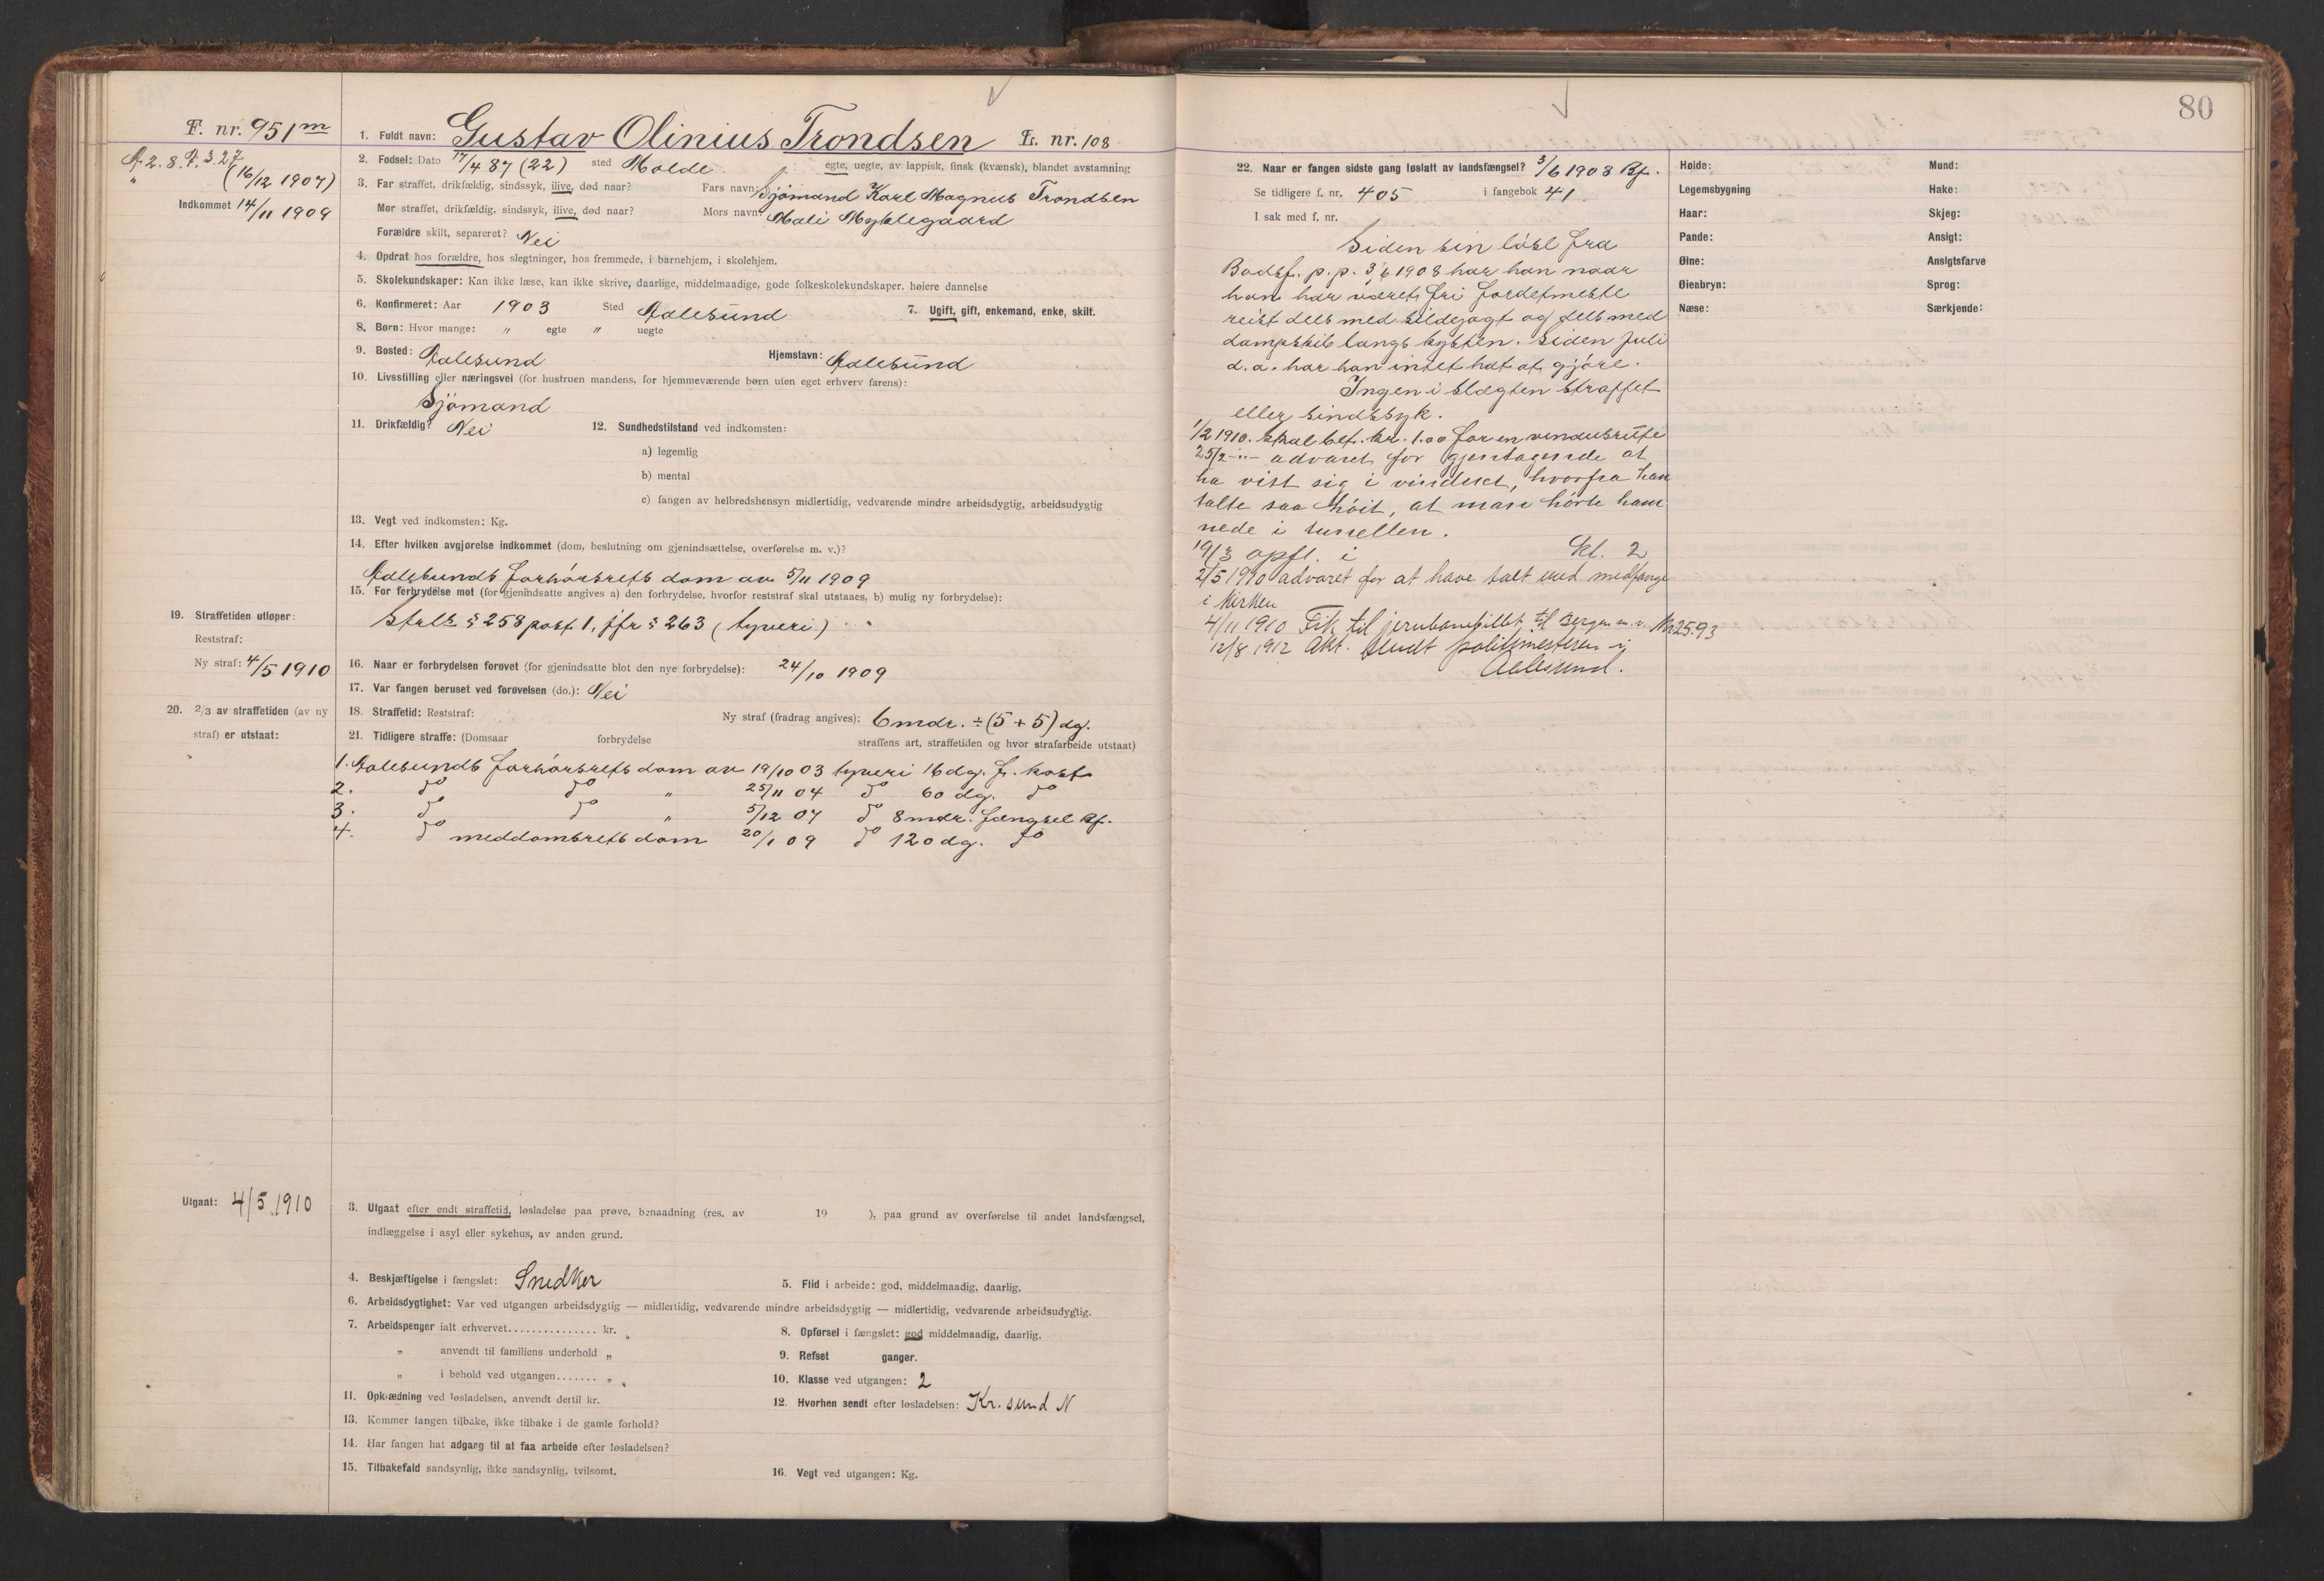 F. nr. 951 m
(16/12 1907)
Indkommet 14/11 1909
1. Fuldt navn: Gustav Olinius Trondsen L. nr. 108
2. Fødsel: Dato 17/4 87 (22) sted Molde egte, uegte, av lappisk, finsk (kvænsk), blandet avstamning
3. Far straffet, drikfældig, sindssyk, ilive, død naar? Fars navn: Sjömand Karl Magnus Trondsen
Mor straffet, drikfældig, sindssyk, ilive, død naar? Mors navn: Mali Myklegaard
Forældre skilt, separeret? Nei
4. Opdrat hos forældre, hos slegtninger, hos fremmede, i barnehjem, i skolehjem.
5. Skolekundskaper: Kan ikke læse, kan ikke skrive, daarlige, middelmaadige, gode folkeskolekundskaper. høiere dannelse
6. Konfirmeret: Aar 1903 Sted Aalesund 7. Ugift, gift, enkemand, enke, skilt.
8. Børn: Hvor mange: " egte " uegte
9. Bosted: Aalesund Hjemstavn: Aalesund
10. Livsstilling eller næringsvei (for hustruen mandens, for hjemmeværende børn uten eget erhverv farens):
Sjömand
11. Drikfældig? Nei 12. Sundhedstilstand ved indkomsten:
a) legemlig
b) mental
c) fangen av helbredshensyn midlertidig, vedvarende mindre arbeidsdygtig, arbeidsudygtig
13. Vegt ved indkomsten: Kg.
14. Efter hvilken avgjørelse indkommet (dom, beslutning om gjenindsættelse, overførelse m. v.)?
Aalesunds forhörsrets dom av 5/11 1909
15. For forbrydelse mot (for gjenindsatte angives a) den forbrydelse, hvorfor reststraf skal utstaaes, b) mulig ny forbrydelse):
Strl. § 258 post 1, jfr § 263 (tyveri)
19. Straffetiden utløper:
Reststraf:
Ny straf: 4/5 1910
16. Naar er forbrydelsen forøvet (for gjenindsatte blot den nye forbrydelse): 24/10 1909
17. Var fangen beruset ved forøvelsen (do.): Nei
20. 2/3 av straffetiden (av ny
straf) er utstaat:
18. Straffetid: Reststraf: Ny straf (fradrag angives): 6 mdr. ÷ (5 + 5) dg.
21. Tidligere straffe: (Domsaar forbrydelse straffens art, straffetiden og hvor strafarbeide utstaat)
1. Aalesunds forhörsrets dom av 19/10 03 tyveri 16 dg. f. kost
2. do do " 25/11 04 do 60 dg. do
3. do do " 5/12 07 do 8 mdr. fængsel Bf.
4. do meddomsrets dom 20/1 09 do 120 dg. do
Utgaat: 4/5 1910
3. Utgaat efter endt straffetid, løsladelse paa prøve, benaadning (res. av 19 ), paa grund av overførelse til andet landsfængsel,
indlæggelse i asyl eller sykehus, av anden grund.
4. Beskjæftigelse i fængslet: Snedker 5. Flid i arbeide: god, middelmaadig, daarlig.
6. Arbeidsdygtighet: Var ved utgangen arbeidsdygtig — midlertidig, vedvarende mindre arbeidsdygtig — midlertidig, vedvarende arbeidsudygtig.
7. Arbeidspenger ialt erhvervet............... kr. 8. Opførsel i fængslet: god middelmaadig, daarlig.
" anvendt til familiens underhold " 9. Refset ganger.
" i behold ved utgangen....... " 10. Klasse ved utgangen: 2
11. Opklædning ved løsladelsen, anvendt dertil kr. 12. Hvorhen sendt efter løsladelsen: Kr. sund N
13. Kommer fangen tilbake, ikke tilbake i de gamle forhold?
14. Har fangen hat adgang til at faa arbeide efter løsladelsen?
15. Tilbakefald sandsynlig, ikke sandsynlig, tvilsomt. 16. Vegt ved utgangen: Kg.
80
22. Naar er fangen sidste gang løslatt av landsfængsel? 3/6 1908 Bf.
Se tidligere f. nr. 405 i fangebok 41
I sak med f. nr.
Siden sin lösl. fra
Bodsf. p.p. 3/6 1908 har han naar
han har været fri fordetmeste
reist dels med sildejagt og dels med
dampskib langs kysten. Siden Juli
d.a. har han intet hat at gjöre.
Ingen i slægten straffet
eller sindssyk.
1/2 1910. skal bet. kr. 1.00 for en vindusrute
25/2 -"- advaret for gjentagende at
ha vist sig i vinduet, hvorfra han
talte saa höit, at man hörte ham
nede i tunellen.
19/3 opfl. i Kl. 2
2/5 1910 advaret for at have talt med medfange
i kirken
4/11 1910 Fik til jernbanebillet til Bergen m.v. 25.93
12/8 1912 Akt. sendt politimesteren i
Aalesund.
Høide: Mund:
Legemsbygning Hake:
Haar: Skjeg:
Pande: Ansigt:
Øine: Ansigtsfarve
Øienbryn: Sprog:
Næse: Særkjende: